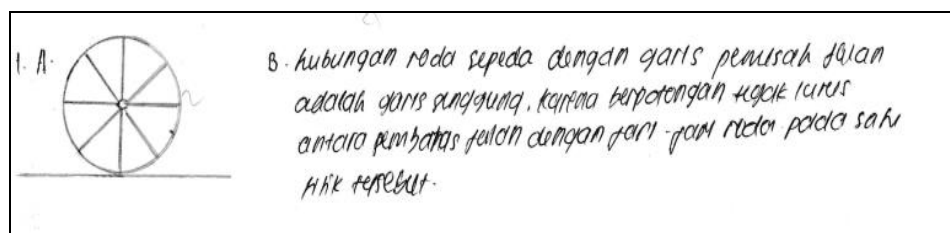 1. A.
B. hubungan roda sepeda dengan garis pemisah jalan
adalah garis singgung, karena berpotongan tegak lurus
antara pembatas jalan dengan jari-jari roda pada satu
titik tersebut.